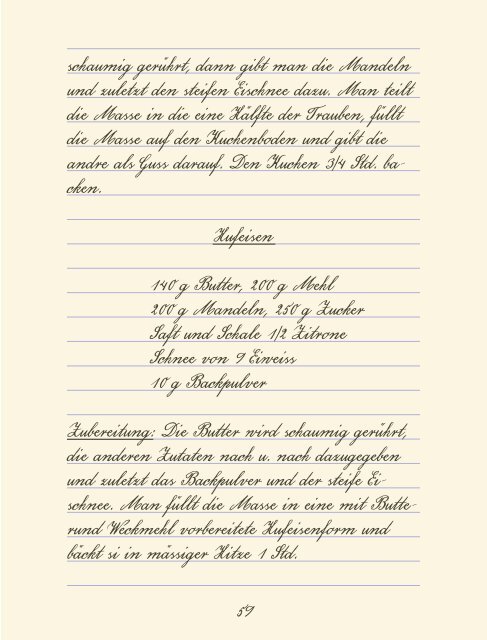 schaumig gerührt, dann gibt man die Mandeln
und zuletzt den steifen Eischnee dazu. Man teilt
die Masse in die eine Hälfte der Trauben, füllt
die Masse auf den Kuchenboden und gibt die
andre als Guss darauf. Den Kuchen 3/4 Std. ba-
cken.
Hufeisen
140 g Butter, 200 g Mehl
200 g Mandeln, 250 g Zucker
Saft und Schale 1/2 Zitrone
Schnee von 9 Eiweiss
10 g Backpulver
Zubereitung: Die Butter wird schaumig gerührt,
die anderen Zutaten nach u. nach dazugegeben
und zuletzt das Backpulver und der steife Ei-
schnee. Man füllt die Masse in eine mit Butte-
rund Weckmehl vorbereitete Hufeisenform und
bäckt si in mässiger Hitze 1 Std.
59